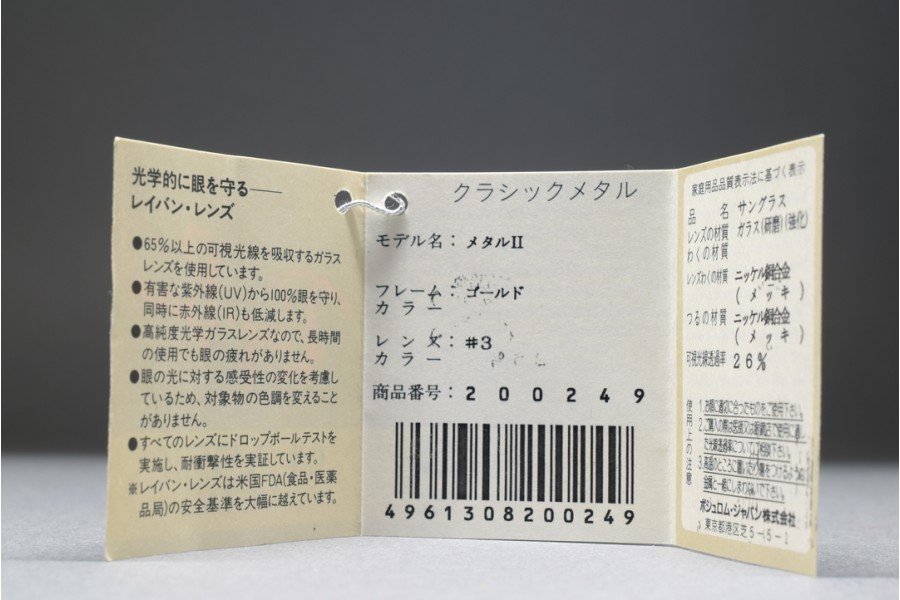 光学的に眼を守る——
レイバン・レンズ
●65%以上の可視光線を吸収するガラス
レンズを使用しています。
●有害な紫外線(UV)から100%眼を守り、
同時に赤外線(IR)も低減します。
●高純度光学ガラスレンズなので、長時間
の使用でも眼の疲れがありません。
●眼の光に対する感受性の変化を考慮し
ているため、対象物の色調を変えること
がありません。
●すべてのレンズにドロップボールテストを
実施し、耐衝撃性を実証しています。
※レイバン・レンズは米国FDA(食品・医薬
品局)の安全基準を大幅に越えています。
クラシックメタル
モデル名：メタルII
フレーム：ゴールド
カラー
レンズ：#3
カラー
商品番号：200249
4961308200249
家庭用品品質表示法に基づく表示
品名 サングラス
レンズの材質 ガラス(研磨)(強化)
わくの材質
レンズわくの材質 ニッケル銅合金
(メッキ)
つるの材質 ニッケル銅合金
(メッキ)
可視光線透過率 26%
使用上の注意
1.お顔に適切に合ったものをご使用下さい。
2.ご購入の際は医師又は眼鏡店で使用に適し
た光線透過率についてご相談下さい。
3.高温のところに置いたり傷をつけるような
金属と一緒にしまわないで下さい。
ボシュロム・ジャパン株式会社
東京都港区芝5-15-1